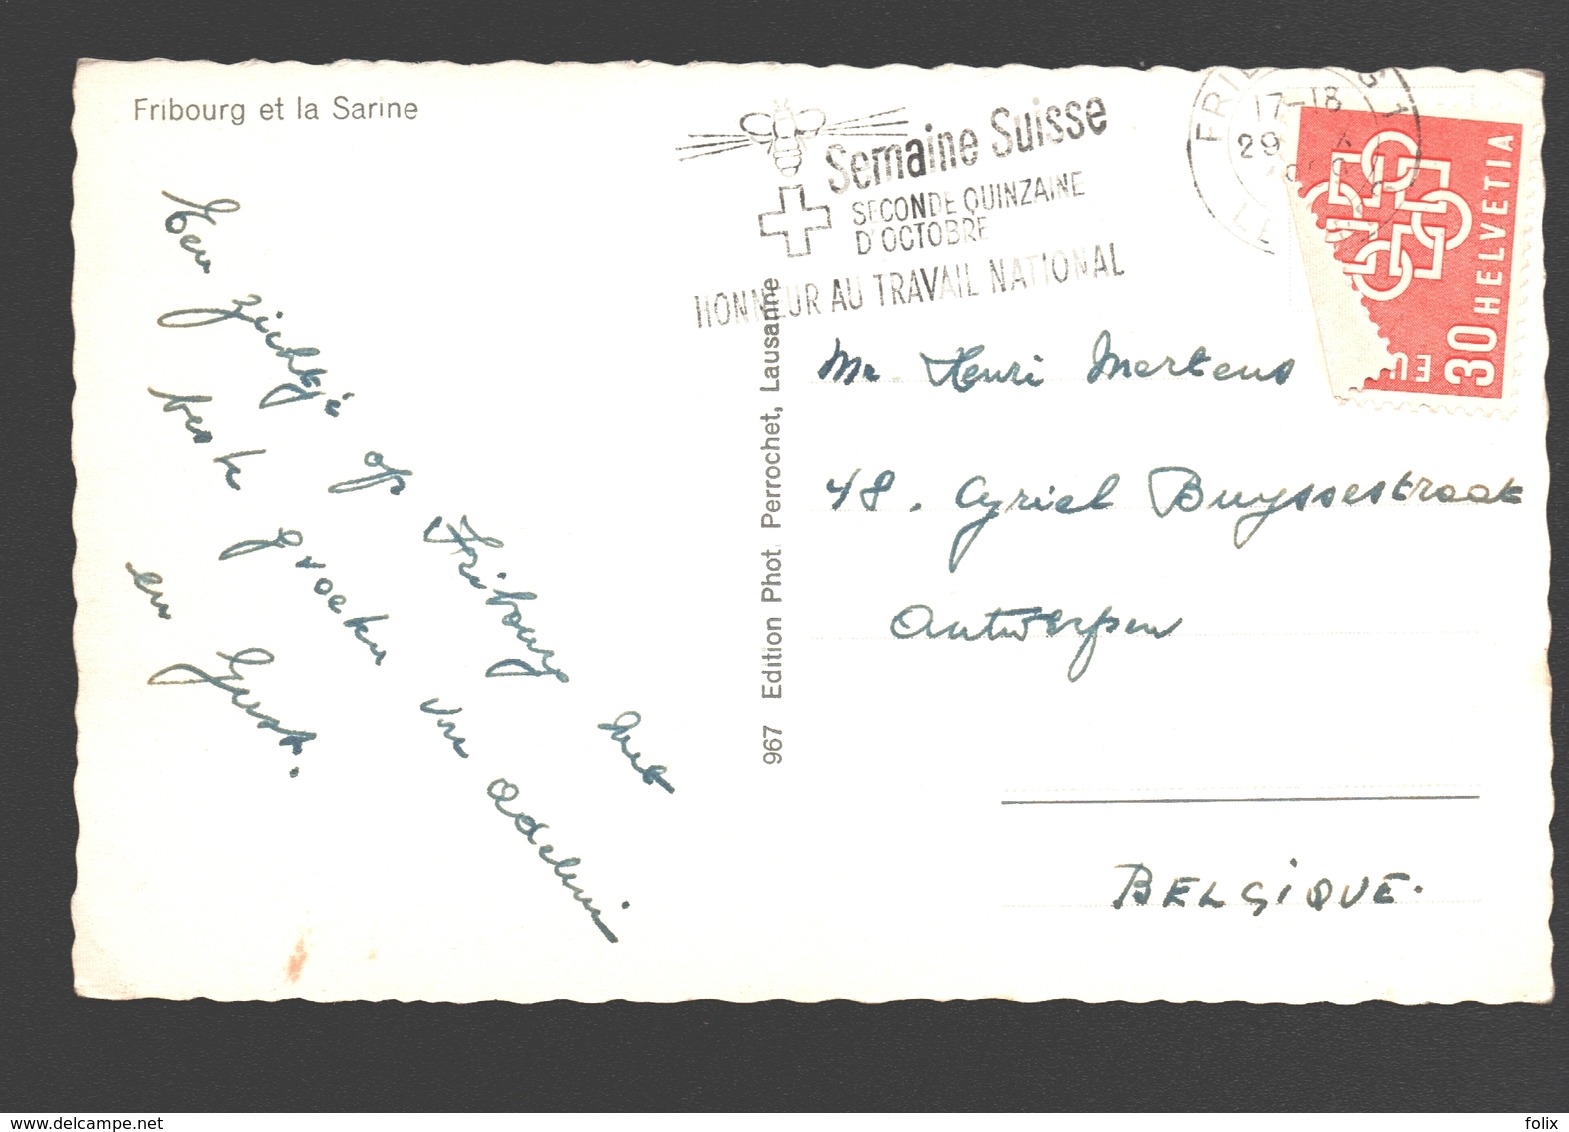 Fribourg et la Sarine
Semaine Suisse
SECONDE QUINZAINE
D'OCTOBRE
HONNEUR AU TRAVAIL NATIONAL
17-18
29
HELVETIA
30
Een zichtje op Fribourg met
beste groeten van Adelin
en Gust.
967 Edition Phot. Perrochet, Lausanne
Mr Henri Mertens
48. Cyriel Buyssestraat
Antwerpen
BELGIQUE.
delcampe.net
folix